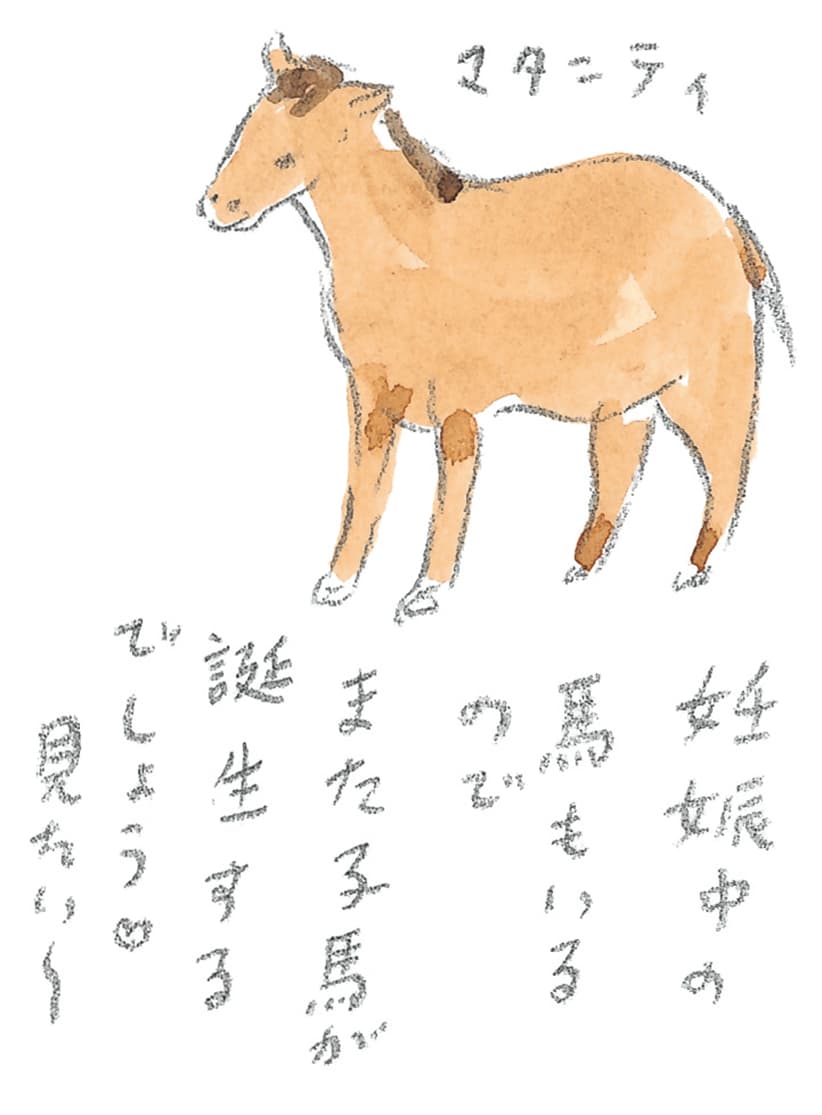 マタニティ
妊娠中の
馬もいる
ので
また子馬が
誕生する
でしょう♡
見たい〜